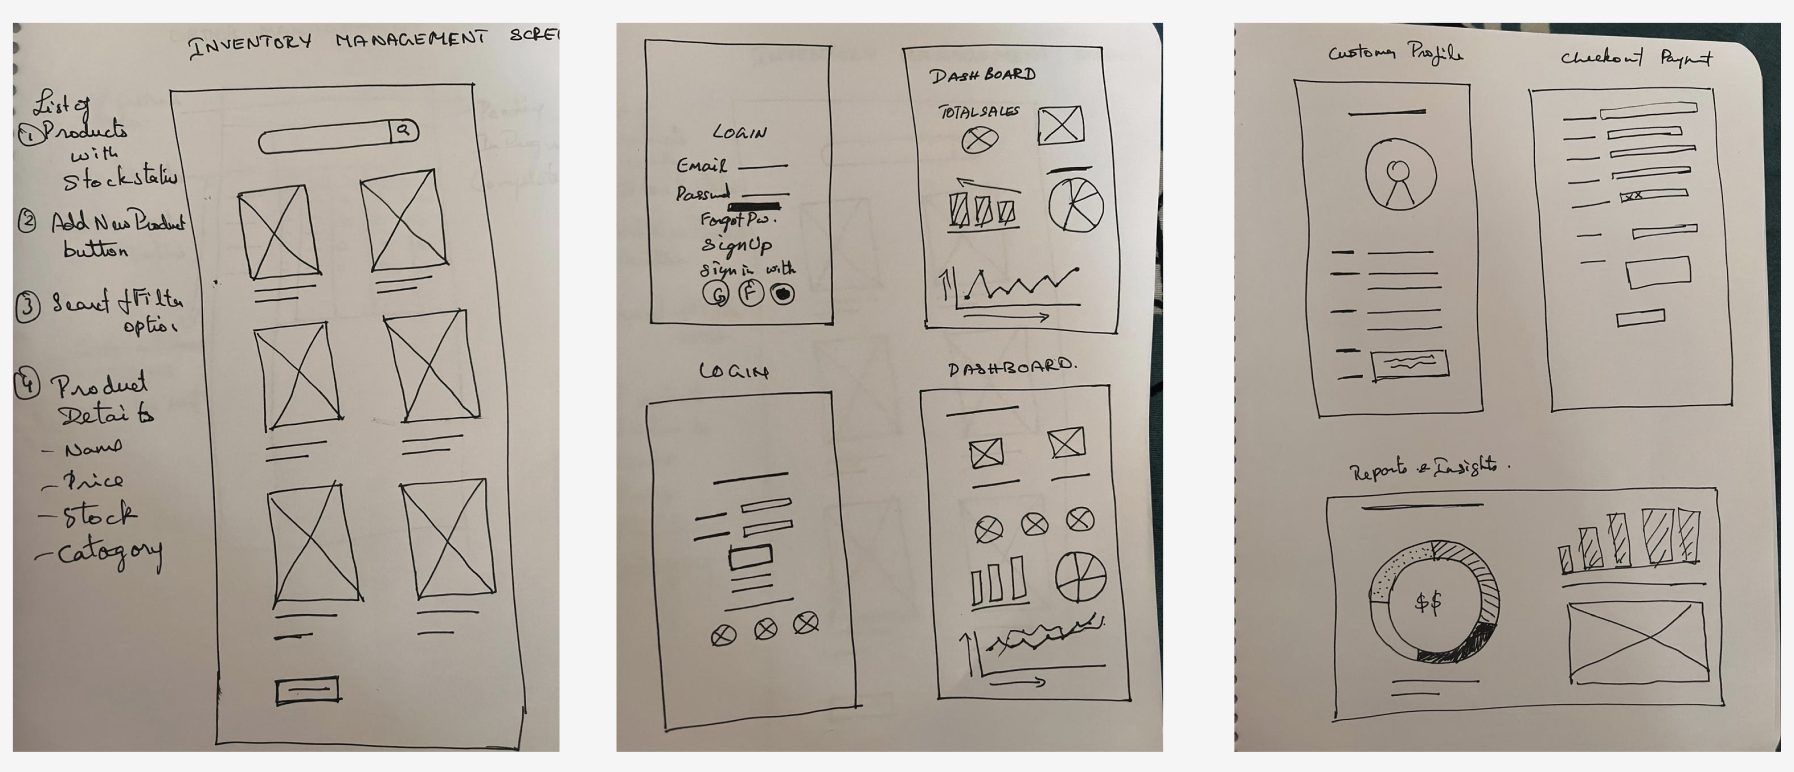 INVENTORY MANAGEMENT SCREE
List of
① Products
with
Stockstatus
② Add New Product
button
③ Search & Filter
option
④ Product
Details
- Name
- Price
- Stock
- Catogory
LOGIN
Email
Passwd
Forgot Pw.
Sign Up
Sign in with
G F
DASHBOARD
TOTAL SALES
LOGIN
DASHBOARD.
Customer Profile
Checkout Paymt
xx
Reports & Insights.
$$